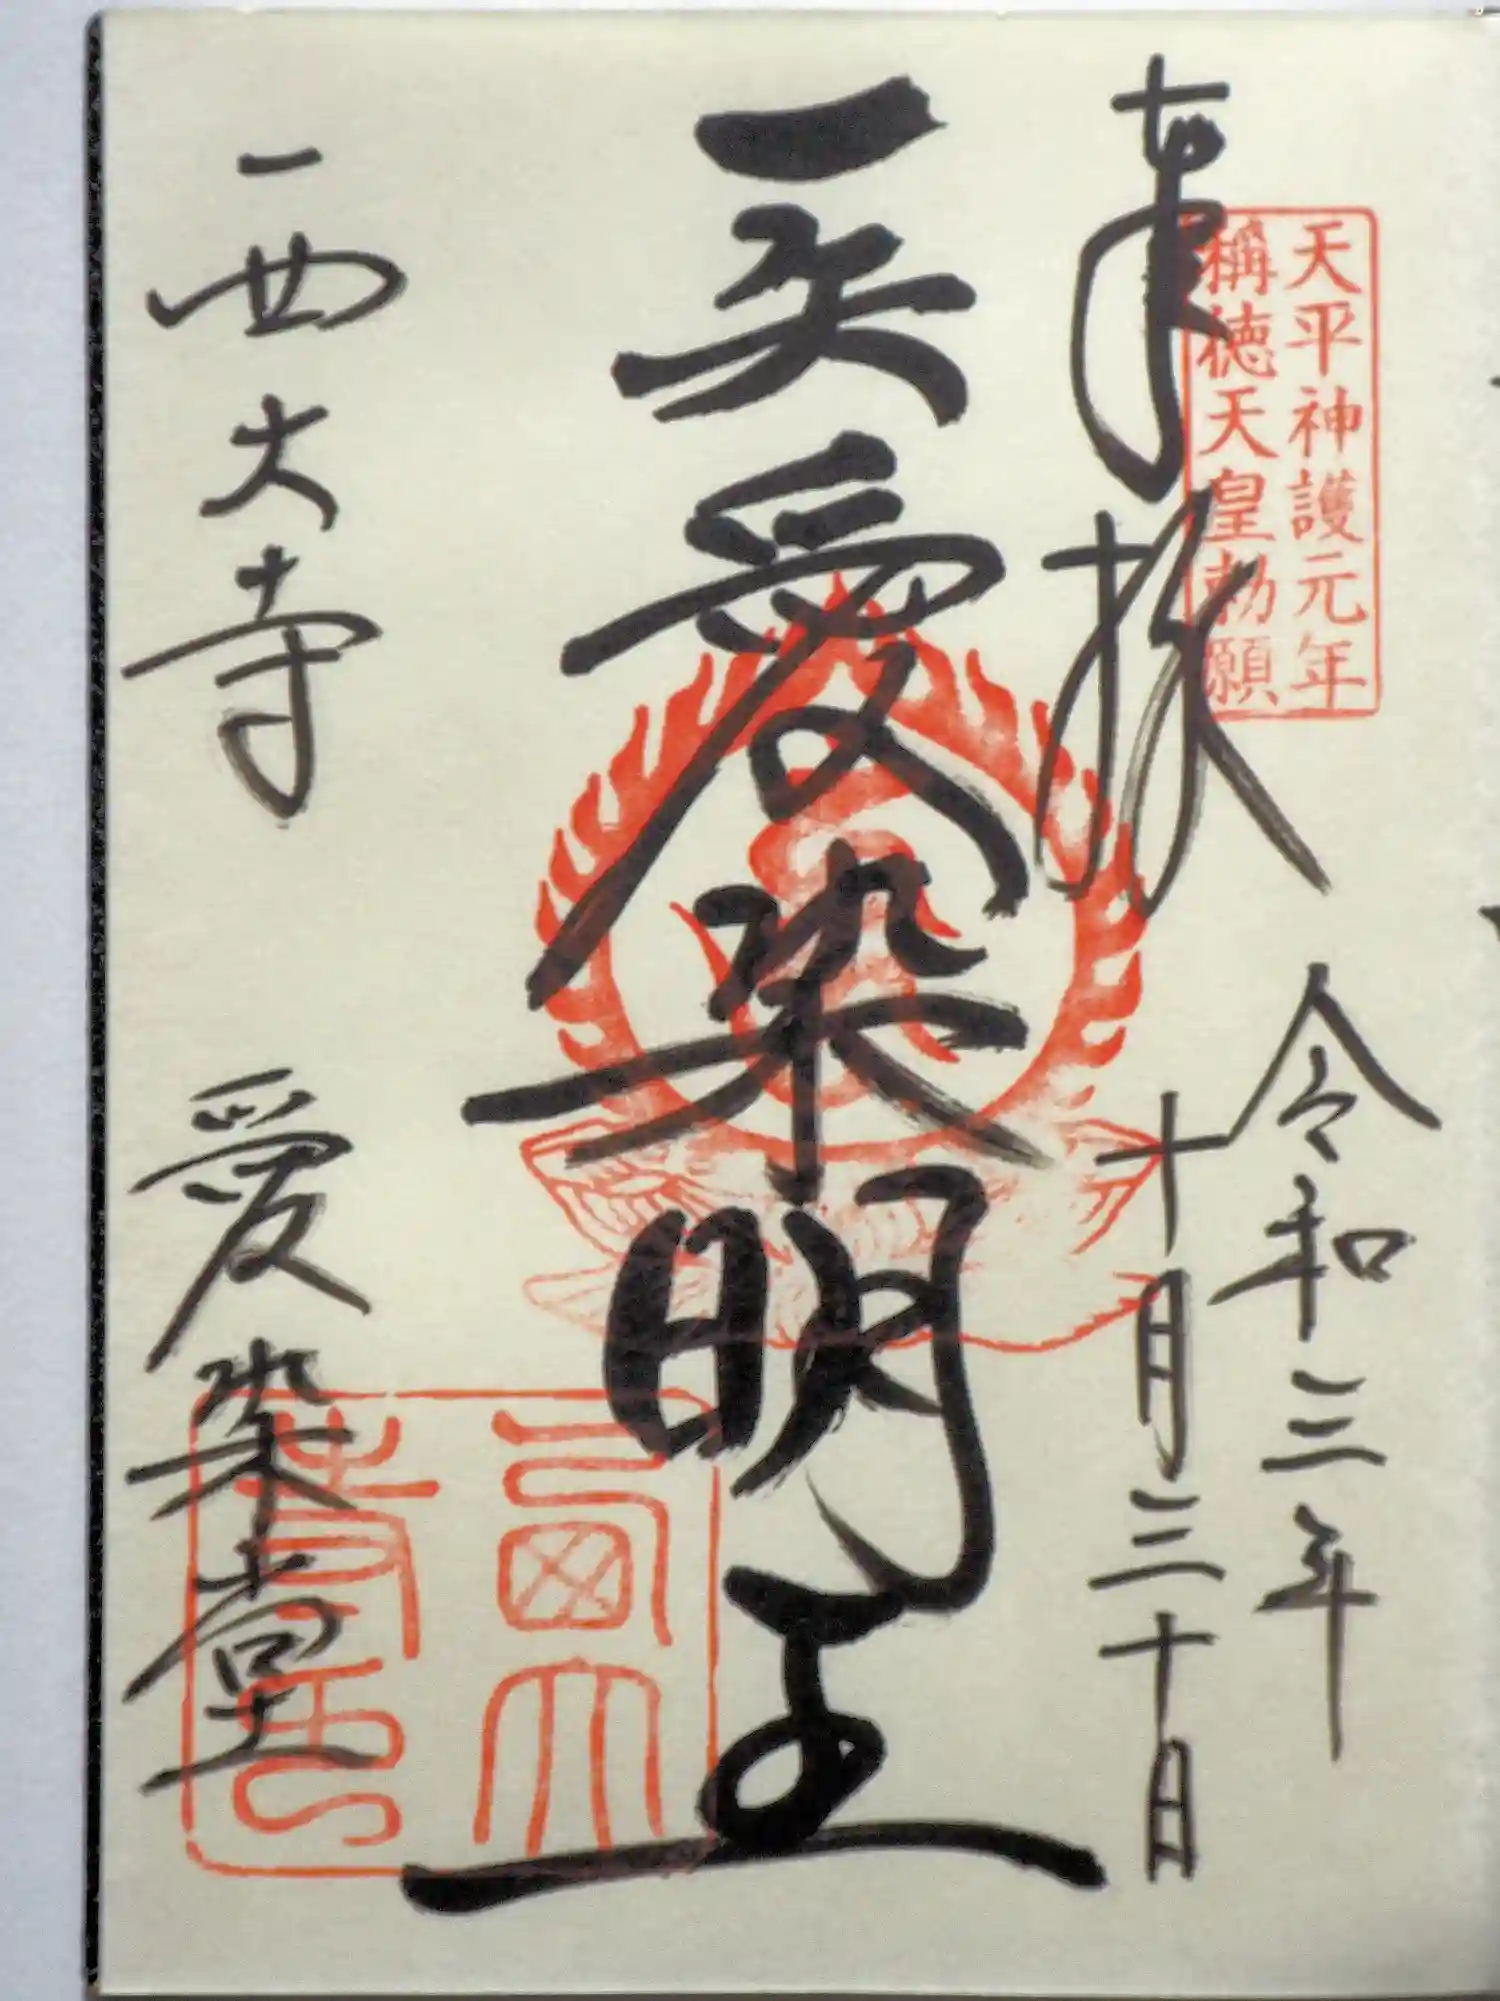 天平神護元年
稱徳天皇勅願
奉拝
令和三年
十月三十日
一矢愛染明王
西大寺 愛染堂
西大寺印